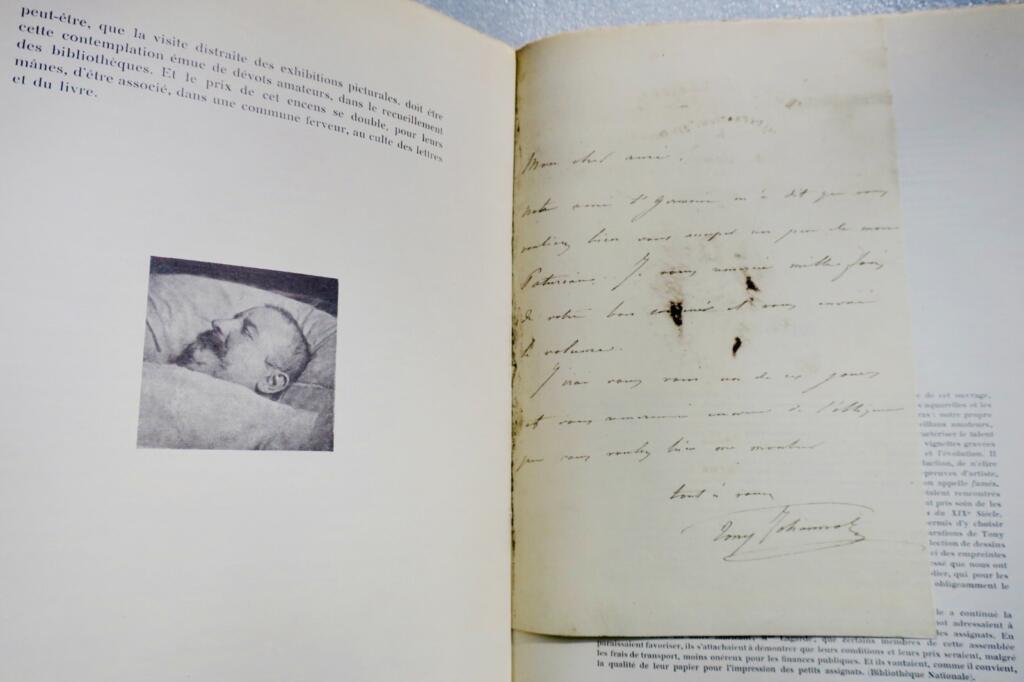 peut-être, que la visite distraite des exhibitions picturales, doit être
cette contemplation émue de dévots amateurs, dans le recueillement
des bibliothèques. Et le prix de cet encens se double, pour leurs
mânes, d'être associé, dans une commune ferveur, au culte des lettres
et du livre.
Mon cher ami,
notre ami St Germain m'a dit que vous
vouliez bien vous occuper un peu de mon
Paturiau. Je vous remercie mille fois
de votre bon et vous envoie
le volume.
J'irai vous voir un de ces jours
et vous remercierai encore de l'obligeance
que vous voulez bien me montrer
tout à vous
Tony Johannot
de cet ouvrage,
aquarelles et les
: notre propre
amateurs,
le talent
vignettes gravées
et l'évolution. Il
, de n'élire
d'artiste,
appelle fumés.
rencontrés
pris soin de les
du XIXe Siècle,
permis d'y choisir
de Tony
de dessins
des empreintes
que nous ont
qui pour les
obligeamment le
le a continué la
adressaient à
les assignats. En
que certains membres de cette assemblée
paraissaient favoriser, ils s'attachaient à démontrer que leurs conditions et leurs prix seraient, malgré
les frais de transport, moins onéreux pour les finances publiques. Et ils vantaient, comme il convient,
la qualité de leur papier pour l'impression des petits assignats. (Bibliothèque Nationale).